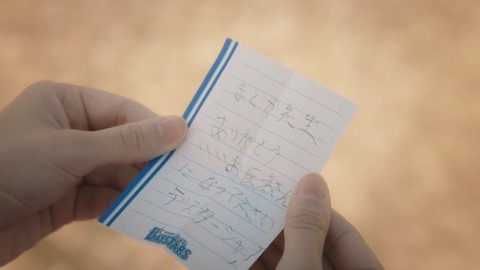 まどか先生
ありがとう
いいお医者さん
になってください
ディスターシャア
BUSTARS